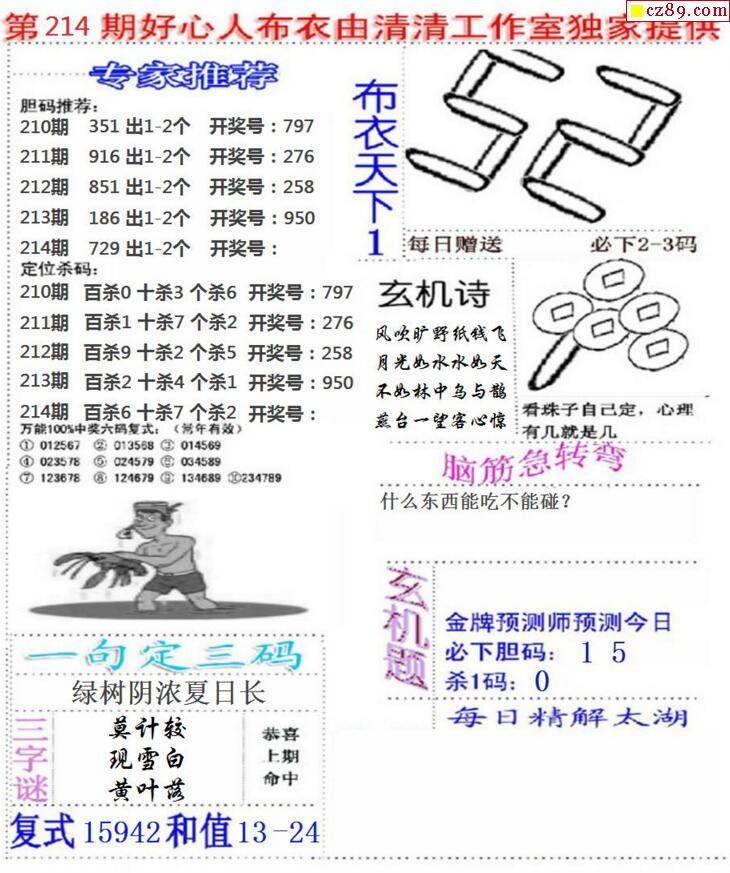 cz89.com
第214期好心人布衣由清清工作室独家提供
专家推荐
胆码推荐:
210期 351 出1-2个 开奖号：797
211期 916 出1-2个 开奖号：276
212期 851 出1-2个 开奖号：258
213期 186 出1-2个 开奖号：950
214期 729 出1-2个 开奖号：
定位杀码:
210期 百杀0 十杀3 个杀6 开奖号：797
211期 百杀1 十杀7 个杀2 开奖号：276
212期 百杀9 十杀2 个杀5 开奖号：258
213期 百杀2 十杀4 个杀1 开奖号：950
214期 百杀6 十杀7 个杀2 开奖号：
万能100%中奖六码复式：（常年有效）
① 012567 ② 013568 ③ 014569
④ 023578 ⑤ 024579 ⑥ 034589
⑦ 123678 ⑧ 124679 ⑨ 134689 ⑩234789
一句定三码
绿树阴浓夏日长
三字谜
莫计较
现雪白
黄叶落
恭喜
上期
命中
复式 15942 和值 13-24
布衣天下1
52
每日赠送 必下2-3码
玄机诗
风吹旷野纸钱飞
月光如水水如天
不如林中乌与鹊
燕台一望客心惊
看珠子自己定，心理
有几就是几
脑筋急转弯
什么东西能吃不能碰？
玄机题
金牌预测师预测今日
必下胆码：1 5
杀1码：0
每日精解太湖